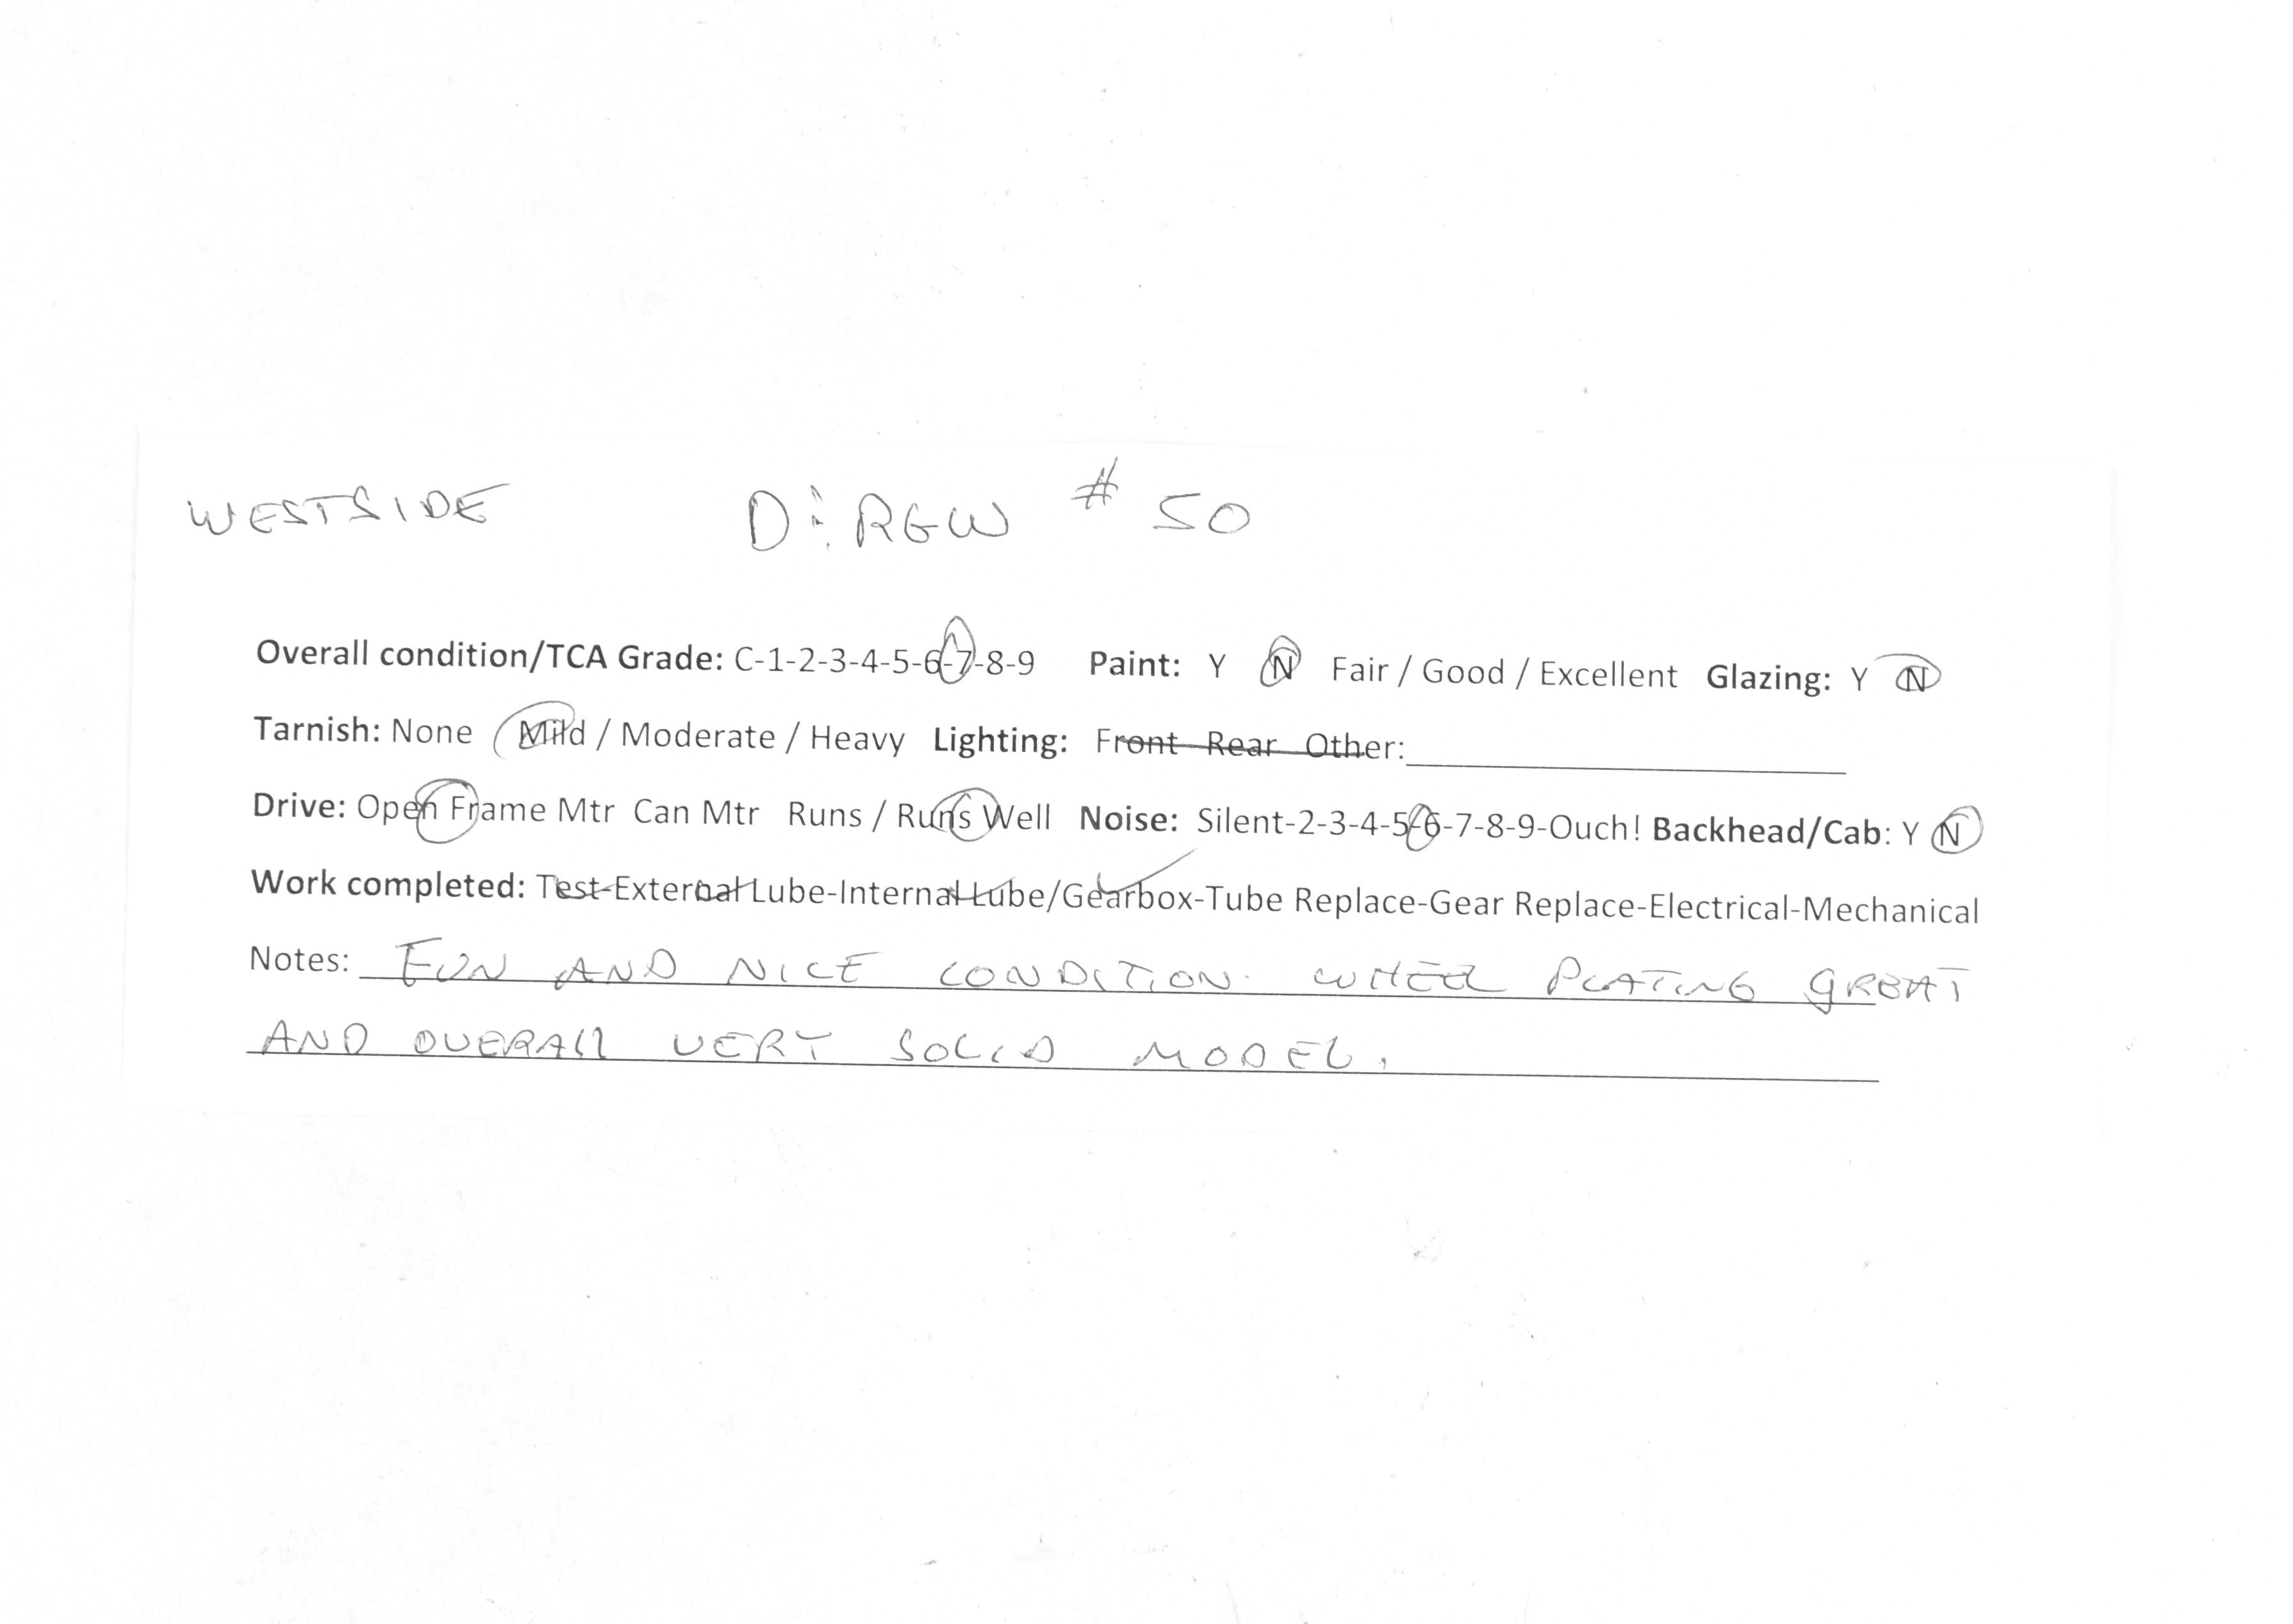 WESTSIDE D&RGW # 50
Overall condition/TCA Grade: C-1-2-3-4-5-6-7-8-9 Paint: Y N Fair / Good / Excellent Glazing: Y N
Tarnish: None / Mild / Moderate / Heavy Lighting: Front Rear Other:
Drive: Open Frame Mtr Can Mtr Runs / Runs Well Noise: Silent-2-3-4-5-6-7-8-9-Ouch! Backhead/Cab: Y N
Work completed: Test-External Lube-Internal Lube/Gearbox-Tube Replace-Gear Replace-Electrical-Mechanical
Notes: FUN AND NICE CONDITION. WHEEL PLATING GREAT
AND OVERALL VERY SOLID MODEL.